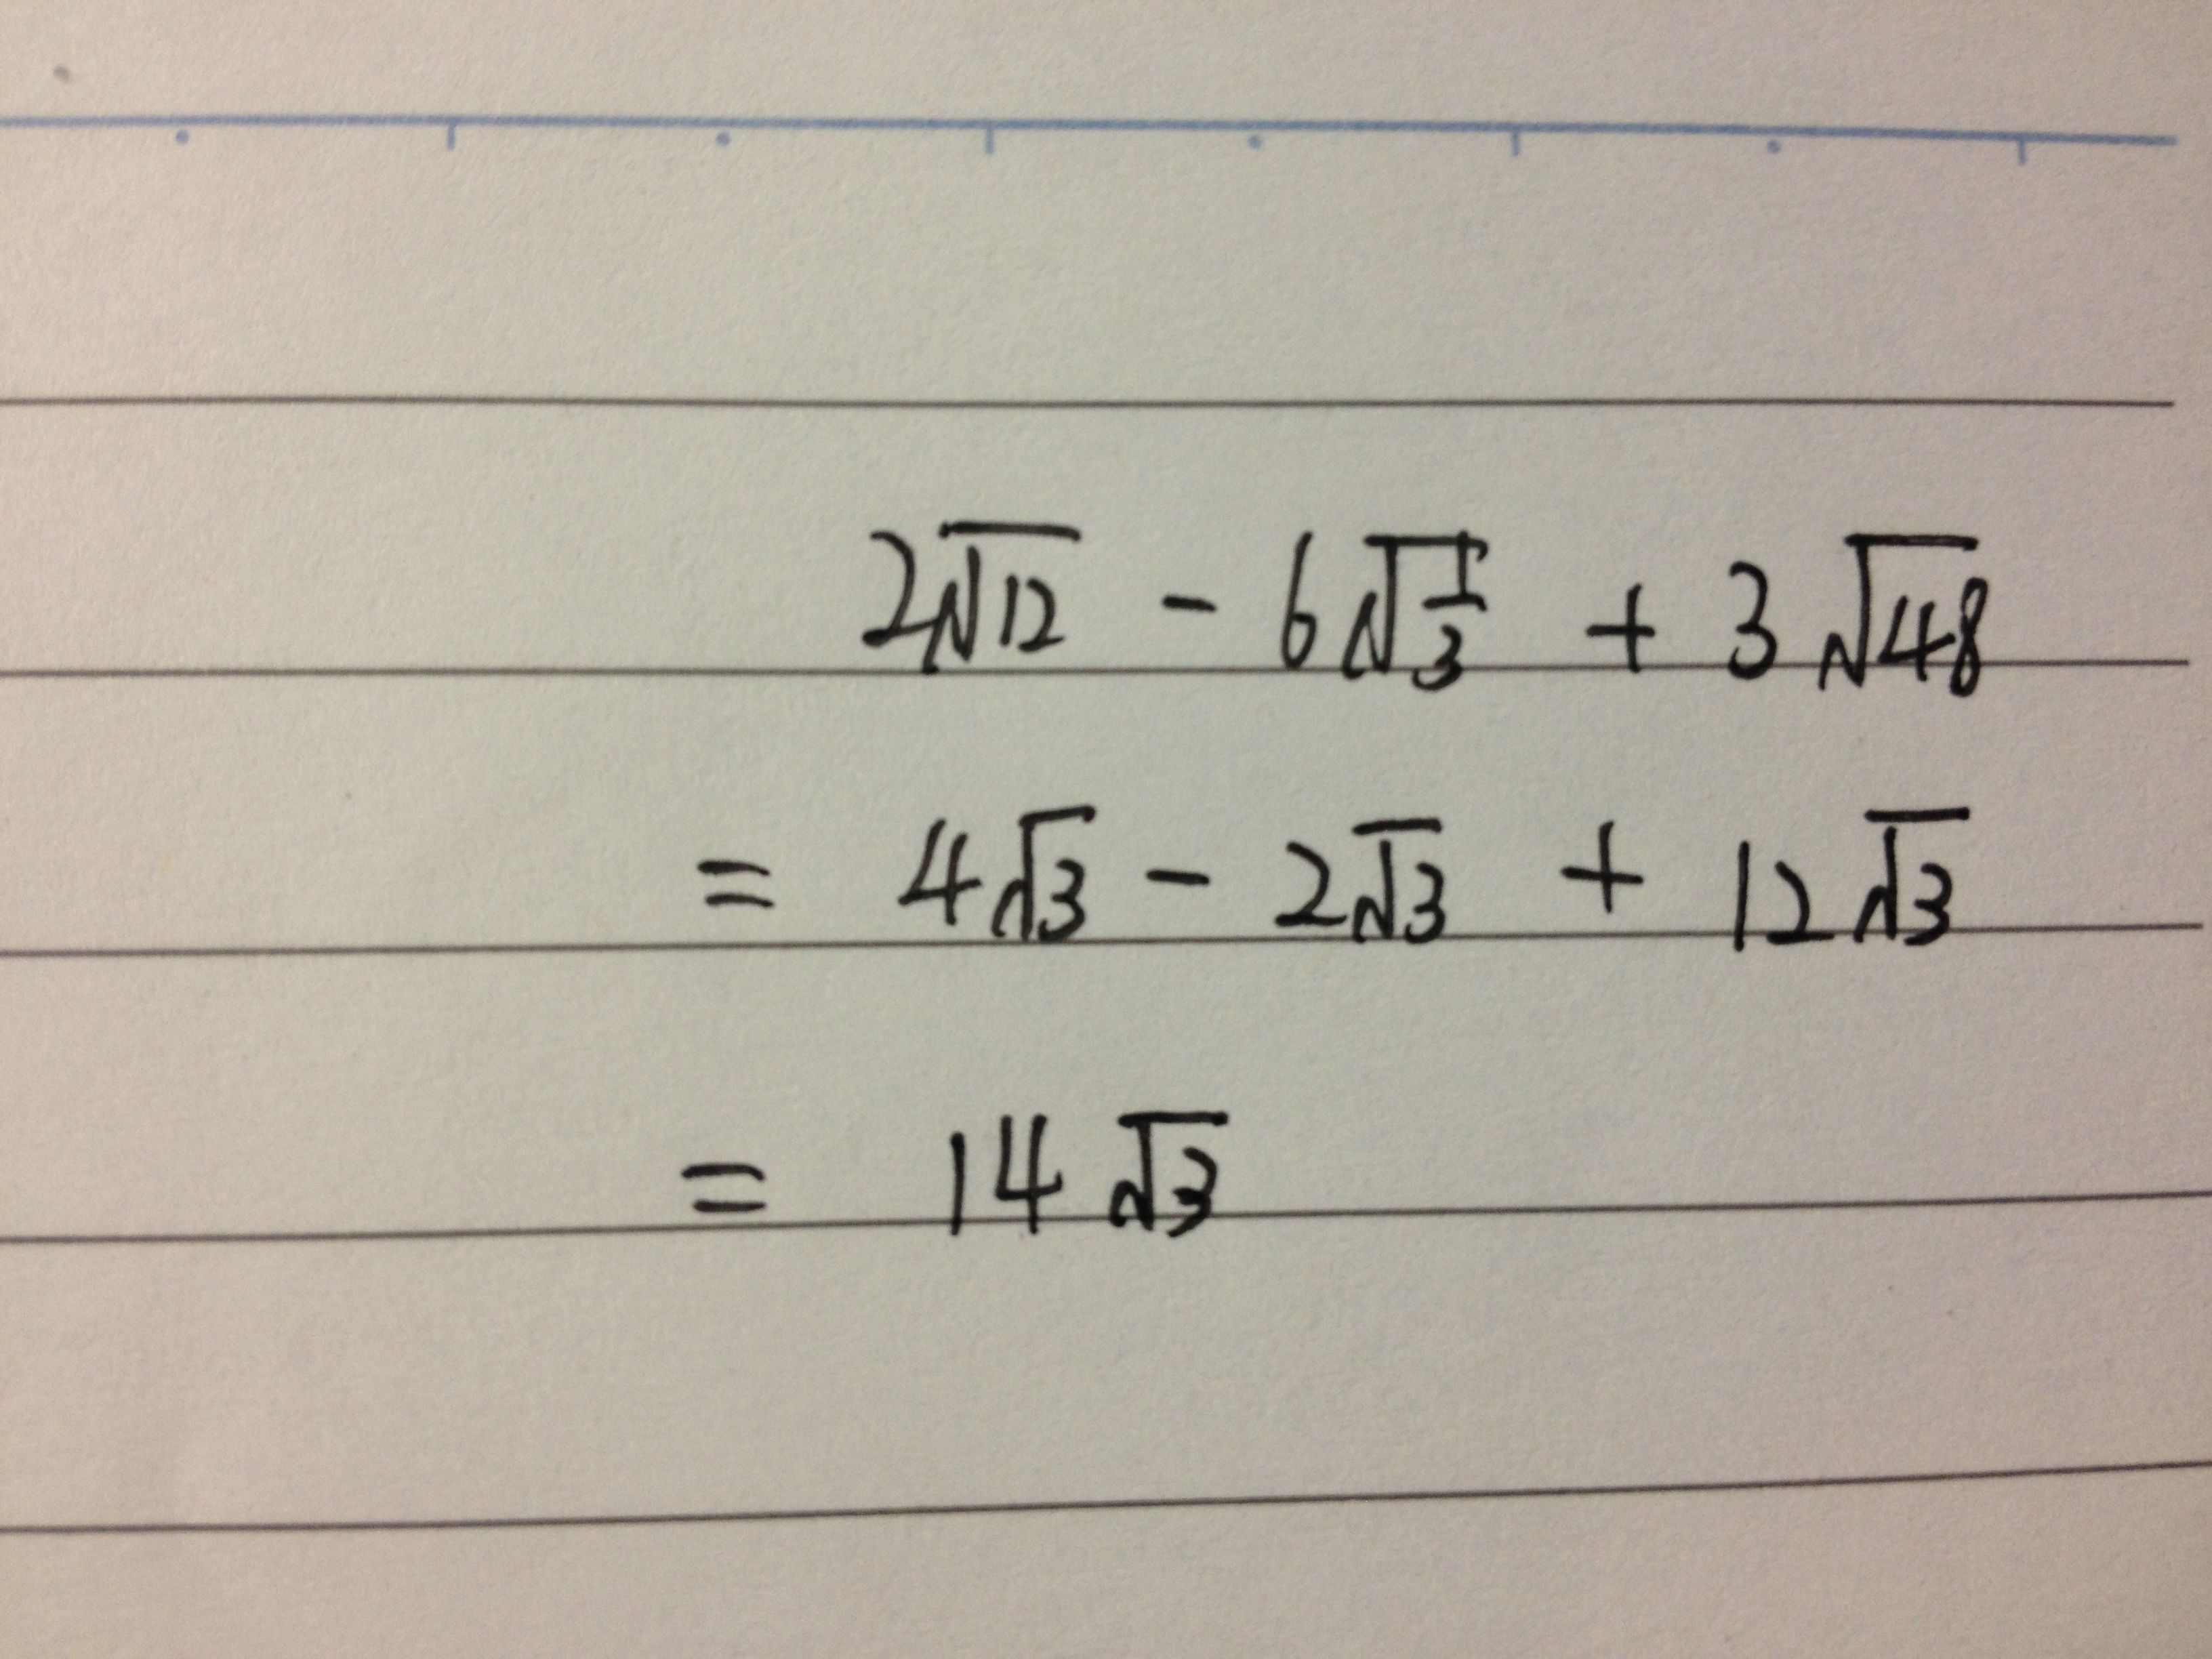 2√12 - 6√(1/3) + 3√48
= 4√3 - 2√3 + 12√3
= 14√3